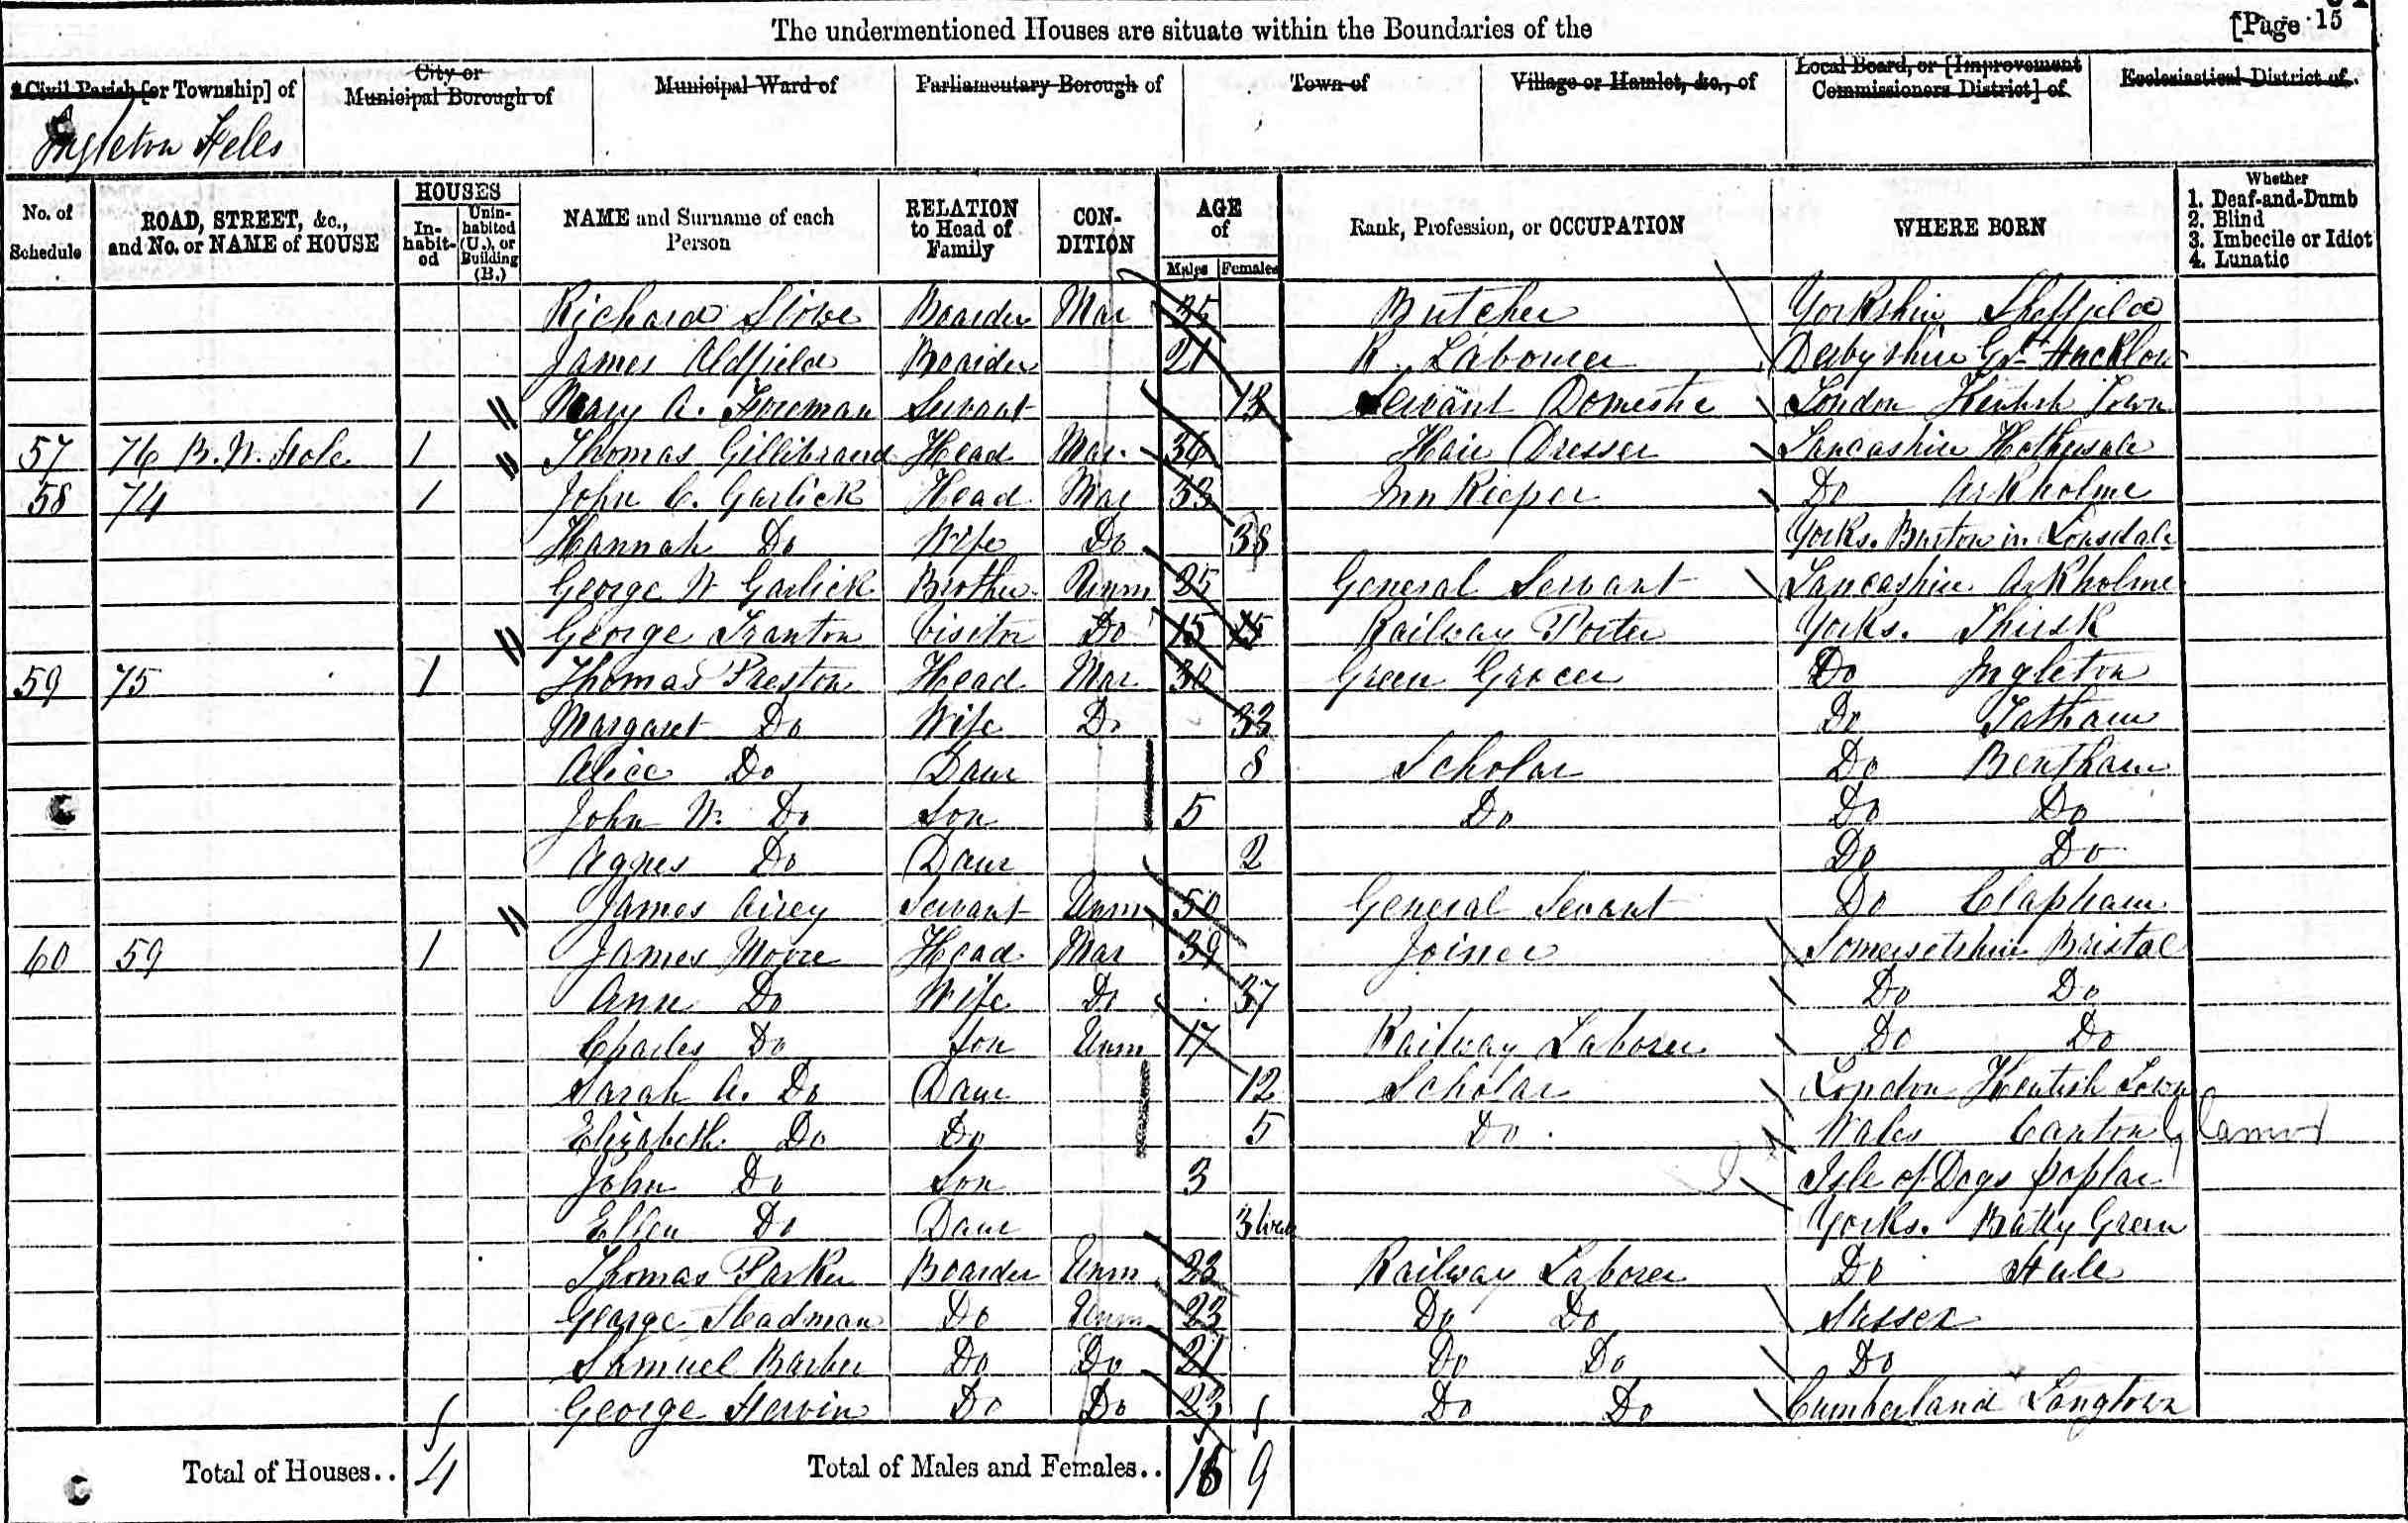 The undermentioned Houses are situate within the Boundaries of the
[Page 15
Civil Parish [or Township] of
City or Municipal Borough of
Municipal Ward of
Parliamentary Borough of
Town of
Village or Hamlet, &c., of
Local Board, or [Improvement Commissioners District] of
Ecclesiastical District of
Ingleton Fells
No. of Schedule
ROAD, STREET, &c., and No. or NAME of HOUSE
HOUSES
In-habit-ed
Unin-habited (U.), or Building (B.)
NAME and Surname of each Person
RELATION to Head of Family
CON-DITION
AGE of
Males
Females
Rank, Profession, or OCCUPATION
WHERE BORN
Whether
1. Deaf-and-Dumb
2. Blind
3. Imbecile or Idiot
4. Lunatic
Richard Boarder Mar 35 Butcher Yorkshire Sheffield
James Oldfield Boarder 21 R. Labourer Derbyshire Grt Hucklow
Mary A. Foreman Servant 13 Servant Domestic London Kentish Town
57 76 B. W. Hole 1 Thomas Gillibrand Head Mar. 36 Hair Dresser Lancashire
58 74 1 John C. Garlick Head Mar 33 Inn Keeper Do Arkholme
Hannah Do Wife Do 38 Yorks. Burton in Lonsdale
George W Garlick Brother Unm 25 General Servant Lancashire Arkholme
George Tranton Visitor Do 15 15 Railway Porter Yorks. Thirsk
59 75 1 Thomas Preston Head Mar 30 Green Grocer Do Ingleton
Margaret Do Wife Do 33 Do Tatham
Alice Do Daur 8 Scholar Do Bentham
John W. Do Son 5 Do Do Do
Agnes Do Daur 2 Do Do
James Airey Servant Unm 50 General Servant Do Clapham
60 59 1 James Moore Head Mar 39 Joiner Somersetshire Bristol
Ann Do Wife Do 37 Do Do
Charles Do Son Unm 17 Railway Laborer Do Do
Sarah A. Do Daur 12 Scholar London Kentish Town
Elizabeth Do Do 5 Do Wales Canton Glamor
John Do Son 3 Isle of Dogs Poplar
Ellen Do Daur 3 weeks Yorks. Batty Green
Thomas Parker Boarder Unm 23 Railway Laborer Do Hull
George Steadman Do Unm 23 Do Do Sussex
Samuel Barber Do Do 21 Do Do Do
George Do Do 23 Do Do Cumberland Longtown
Total of Houses.. 4 Total of Males and Females.. 16 9